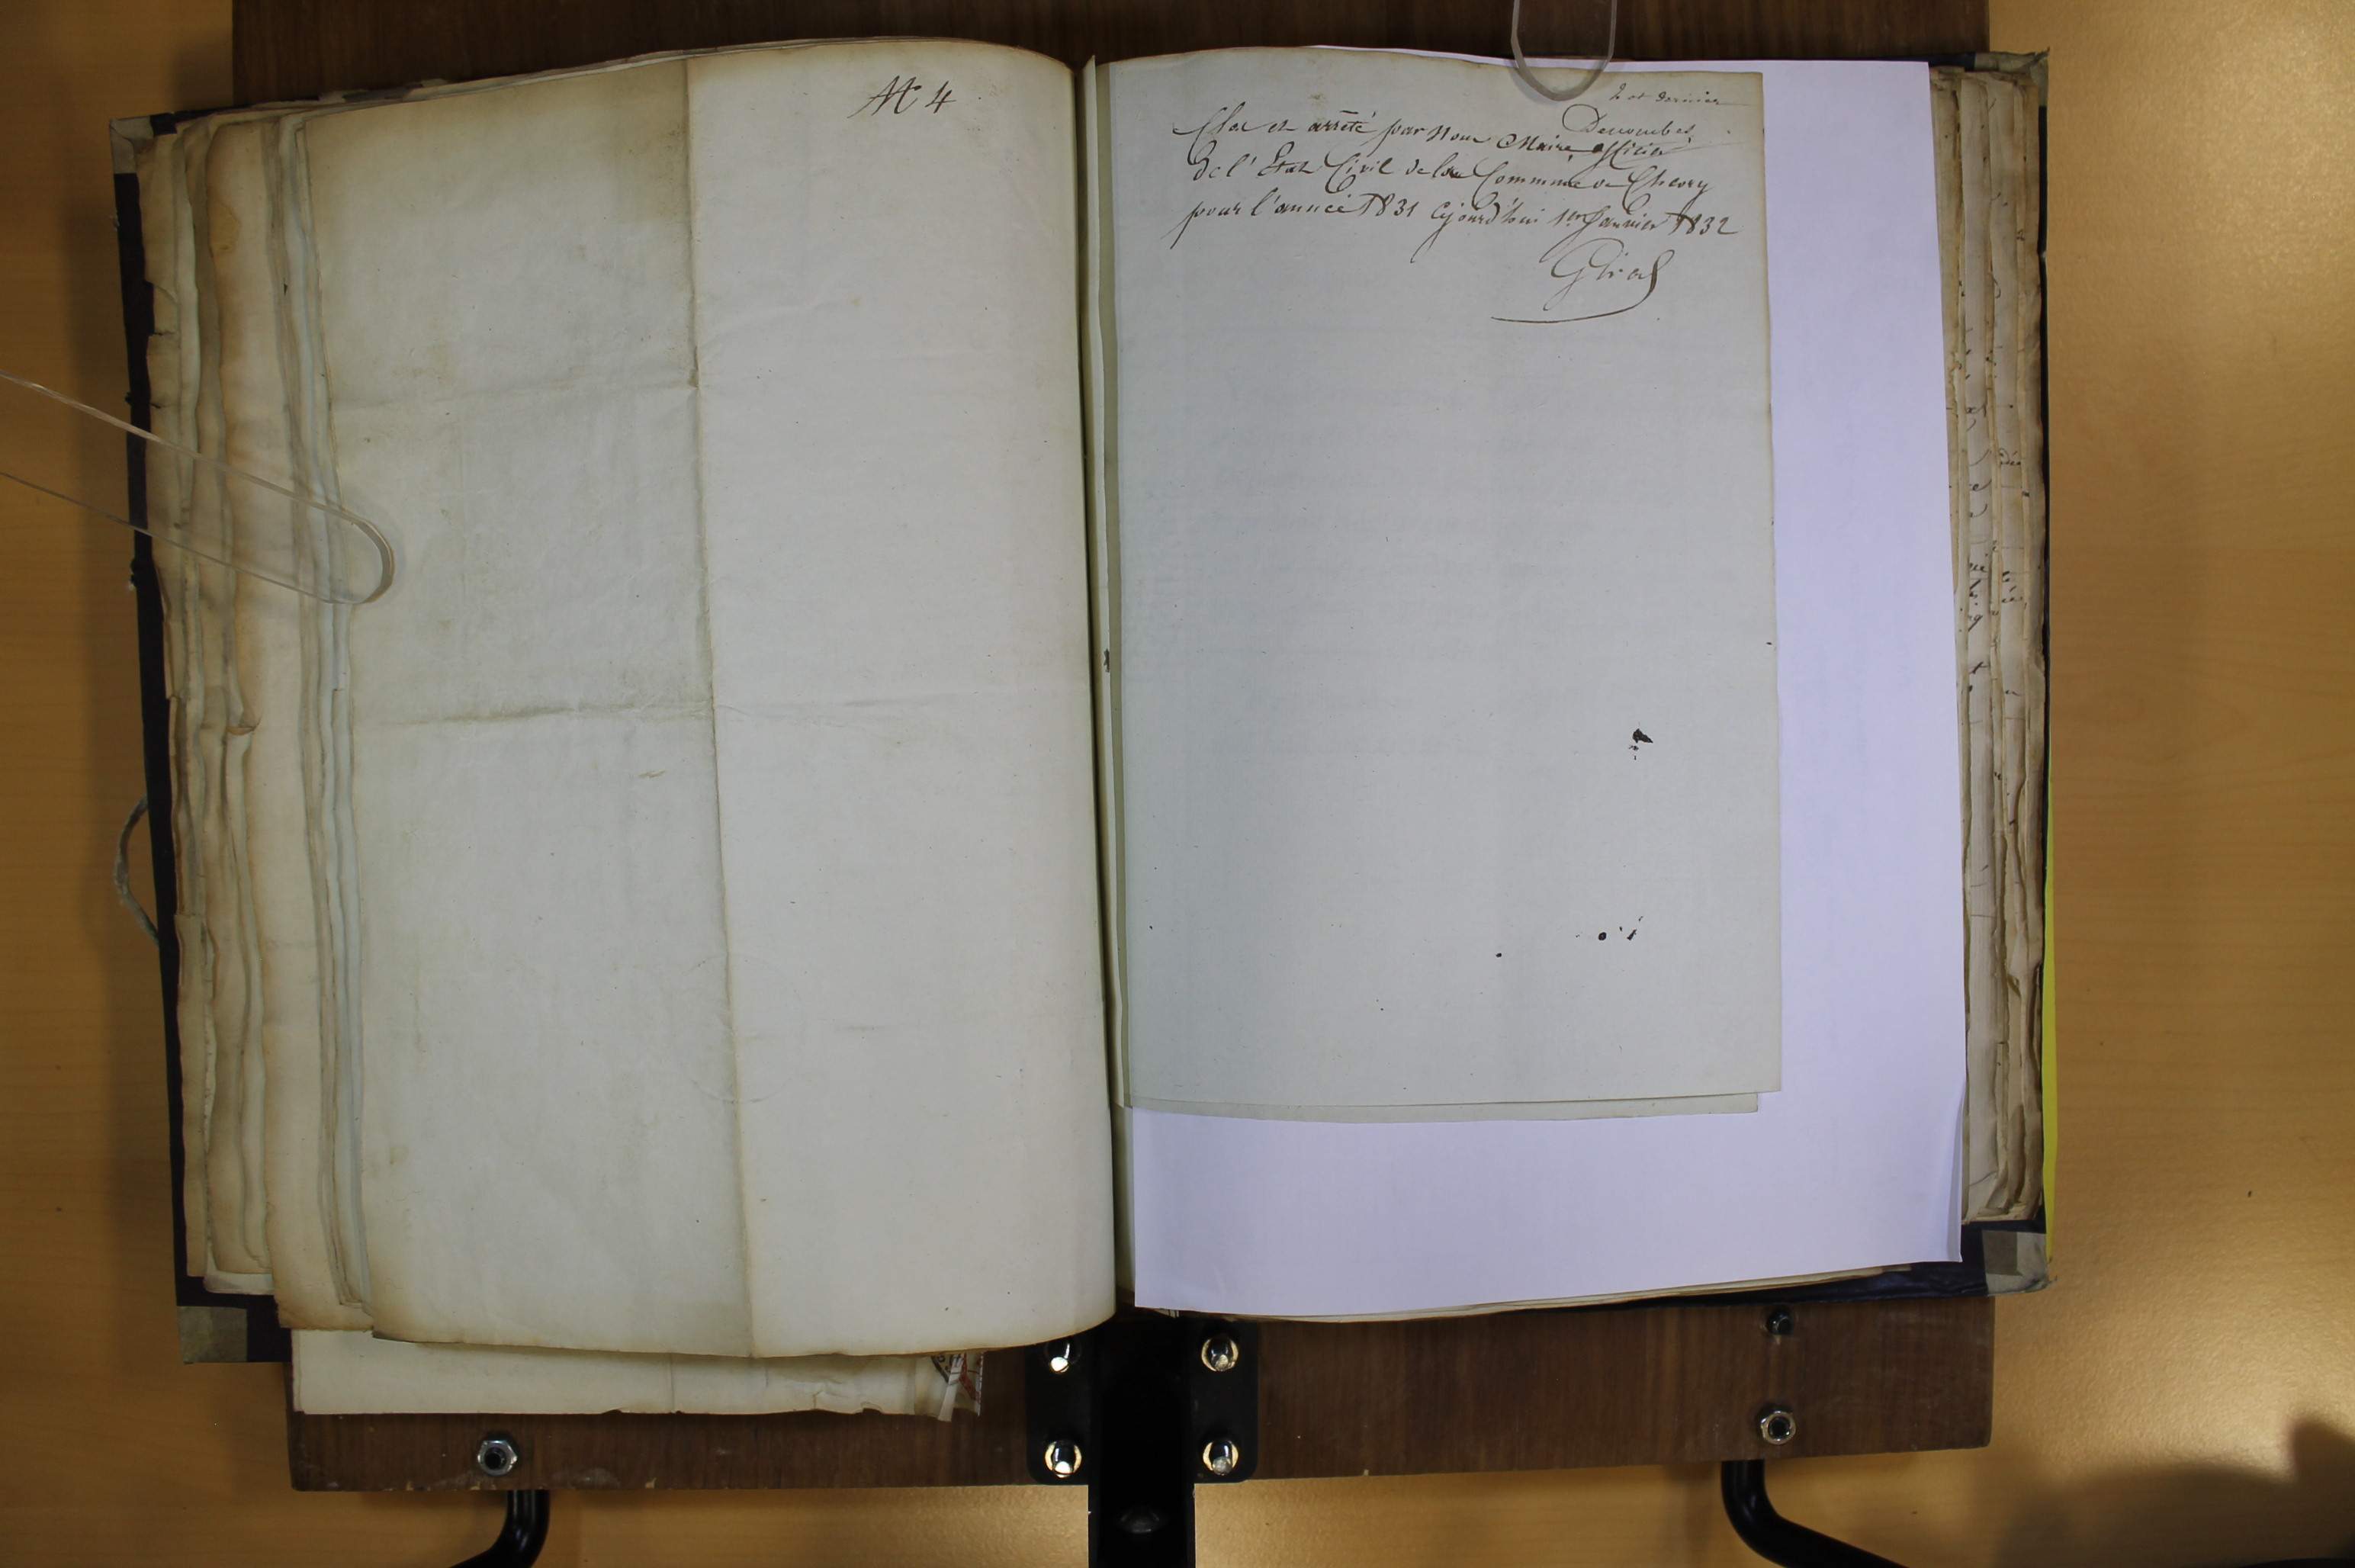 M 4
2 et dernier
Descombes
Clos et arrêté par Nous Maire officier
de l'État Civil de la Commune de Chevry
pour l'année 1831 Cejourd'hui 1er Janvier 1832